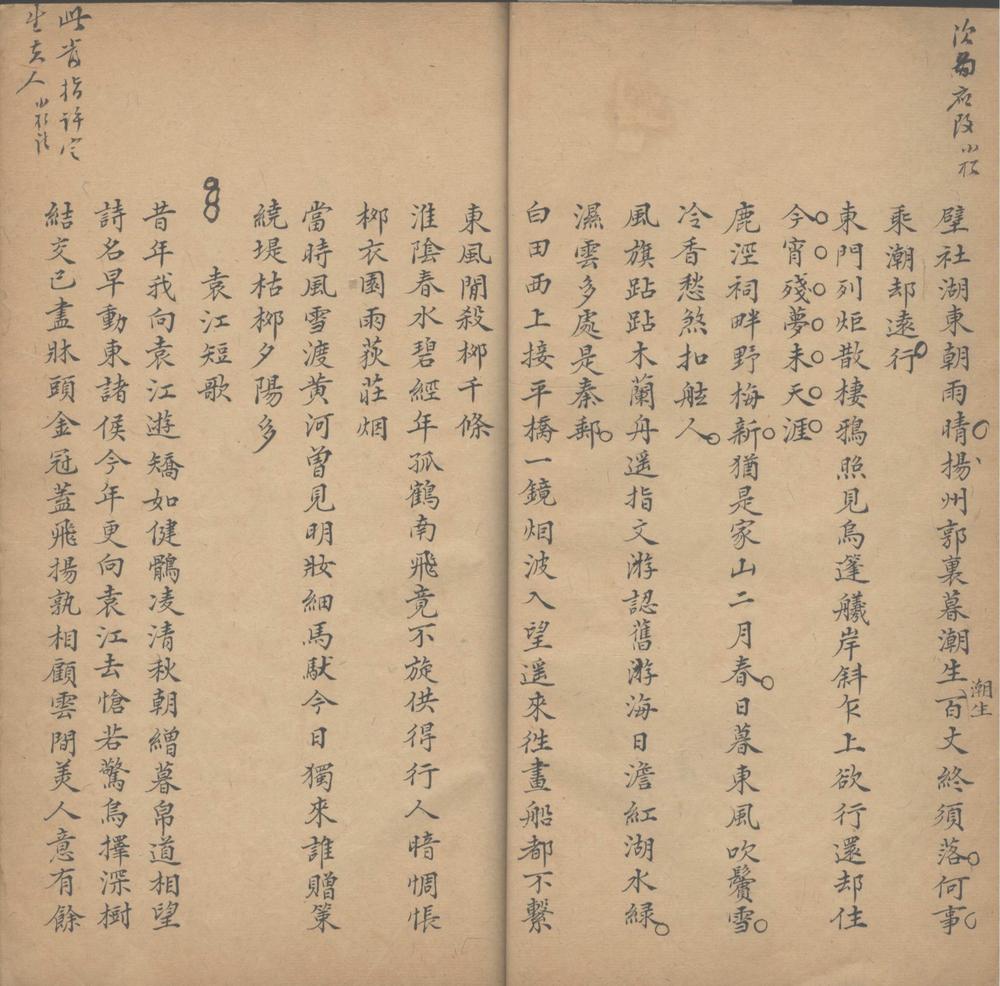 次首應改 小松
甓社湖東朝雨晴揚州郭裏暮潮生百丈終須落何事
潮生
乘潮却遠行
東門列炬散棲鴉照見烏篷艤岸斜乍上欲行還却住
今宵殘夢未天涯
鹿涇祠畔野梅新猶是家山二月春日暮東風吹鬢雪
冷香愁煞扣舷人
風旗跕跕木蘭舟遥指文游認舊游海日澹紅湖水緑
濕雲多處是秦郵
白田西上接平橋一鏡烟波入望遥來往畫船都不繫
東風閒殺桺千條
淮陰春水碧經年孤鶴南飛竟不旋供得行人暗惆悵
桺衣園雨荻莊烟
當時風雪渡黃河曾見明妝細馬馱今日獨來誰贈策
繞堤枯桺夕陽多
袁江短歌
昔年我向袁江遊矯如健鶻凌清秋朝繒暮帛道相望
詩名早動東諸侯今年更向袁江去愴若驚烏擇深樹
結交已盡牀頭金冠蓋飛揚孰相顧雲間美人意有餘
此首指許定
生夫人 小松註